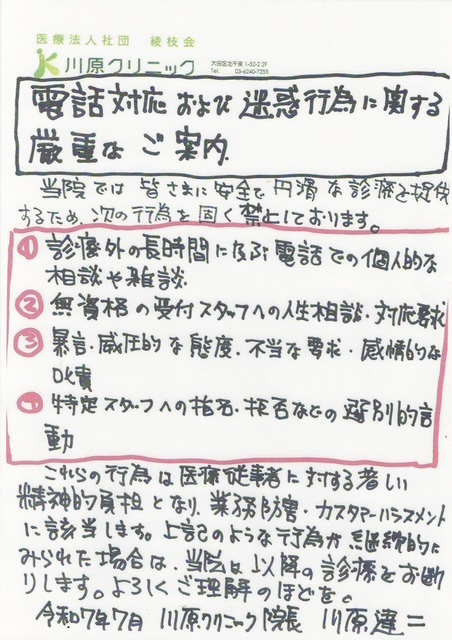 医療法人社団 綾枝会
川原クリニック
大田区北千束1-52-2 2F
Tel. 03-6240-7255
電話対応および迷惑行為に関する
厳重なご案内.
当院では皆さまに安全で円滑な診療を提供
するため、次の行為を固く禁止しております。
① 診療外の長時間に及ぶ電話での個人的な
相談や雑談.
② 無資格の受付スタッフへの人生相談・対応要求
③ 暴言・威圧的な態度・不当な要求・感情的な
叱責
特定スタッフへの指名・拒否などの選別的言
動
これらの行為は医療従事者に対する著しい
精神的負担となり、業務防害・カスタマーハラスメント
に該当します。上記のような行為が継続的に
みられた場合は、当院は以降の診療をお断
りします。よろしくご理解のほどを。
令和7年7月 川原クリニック院長 川原達二